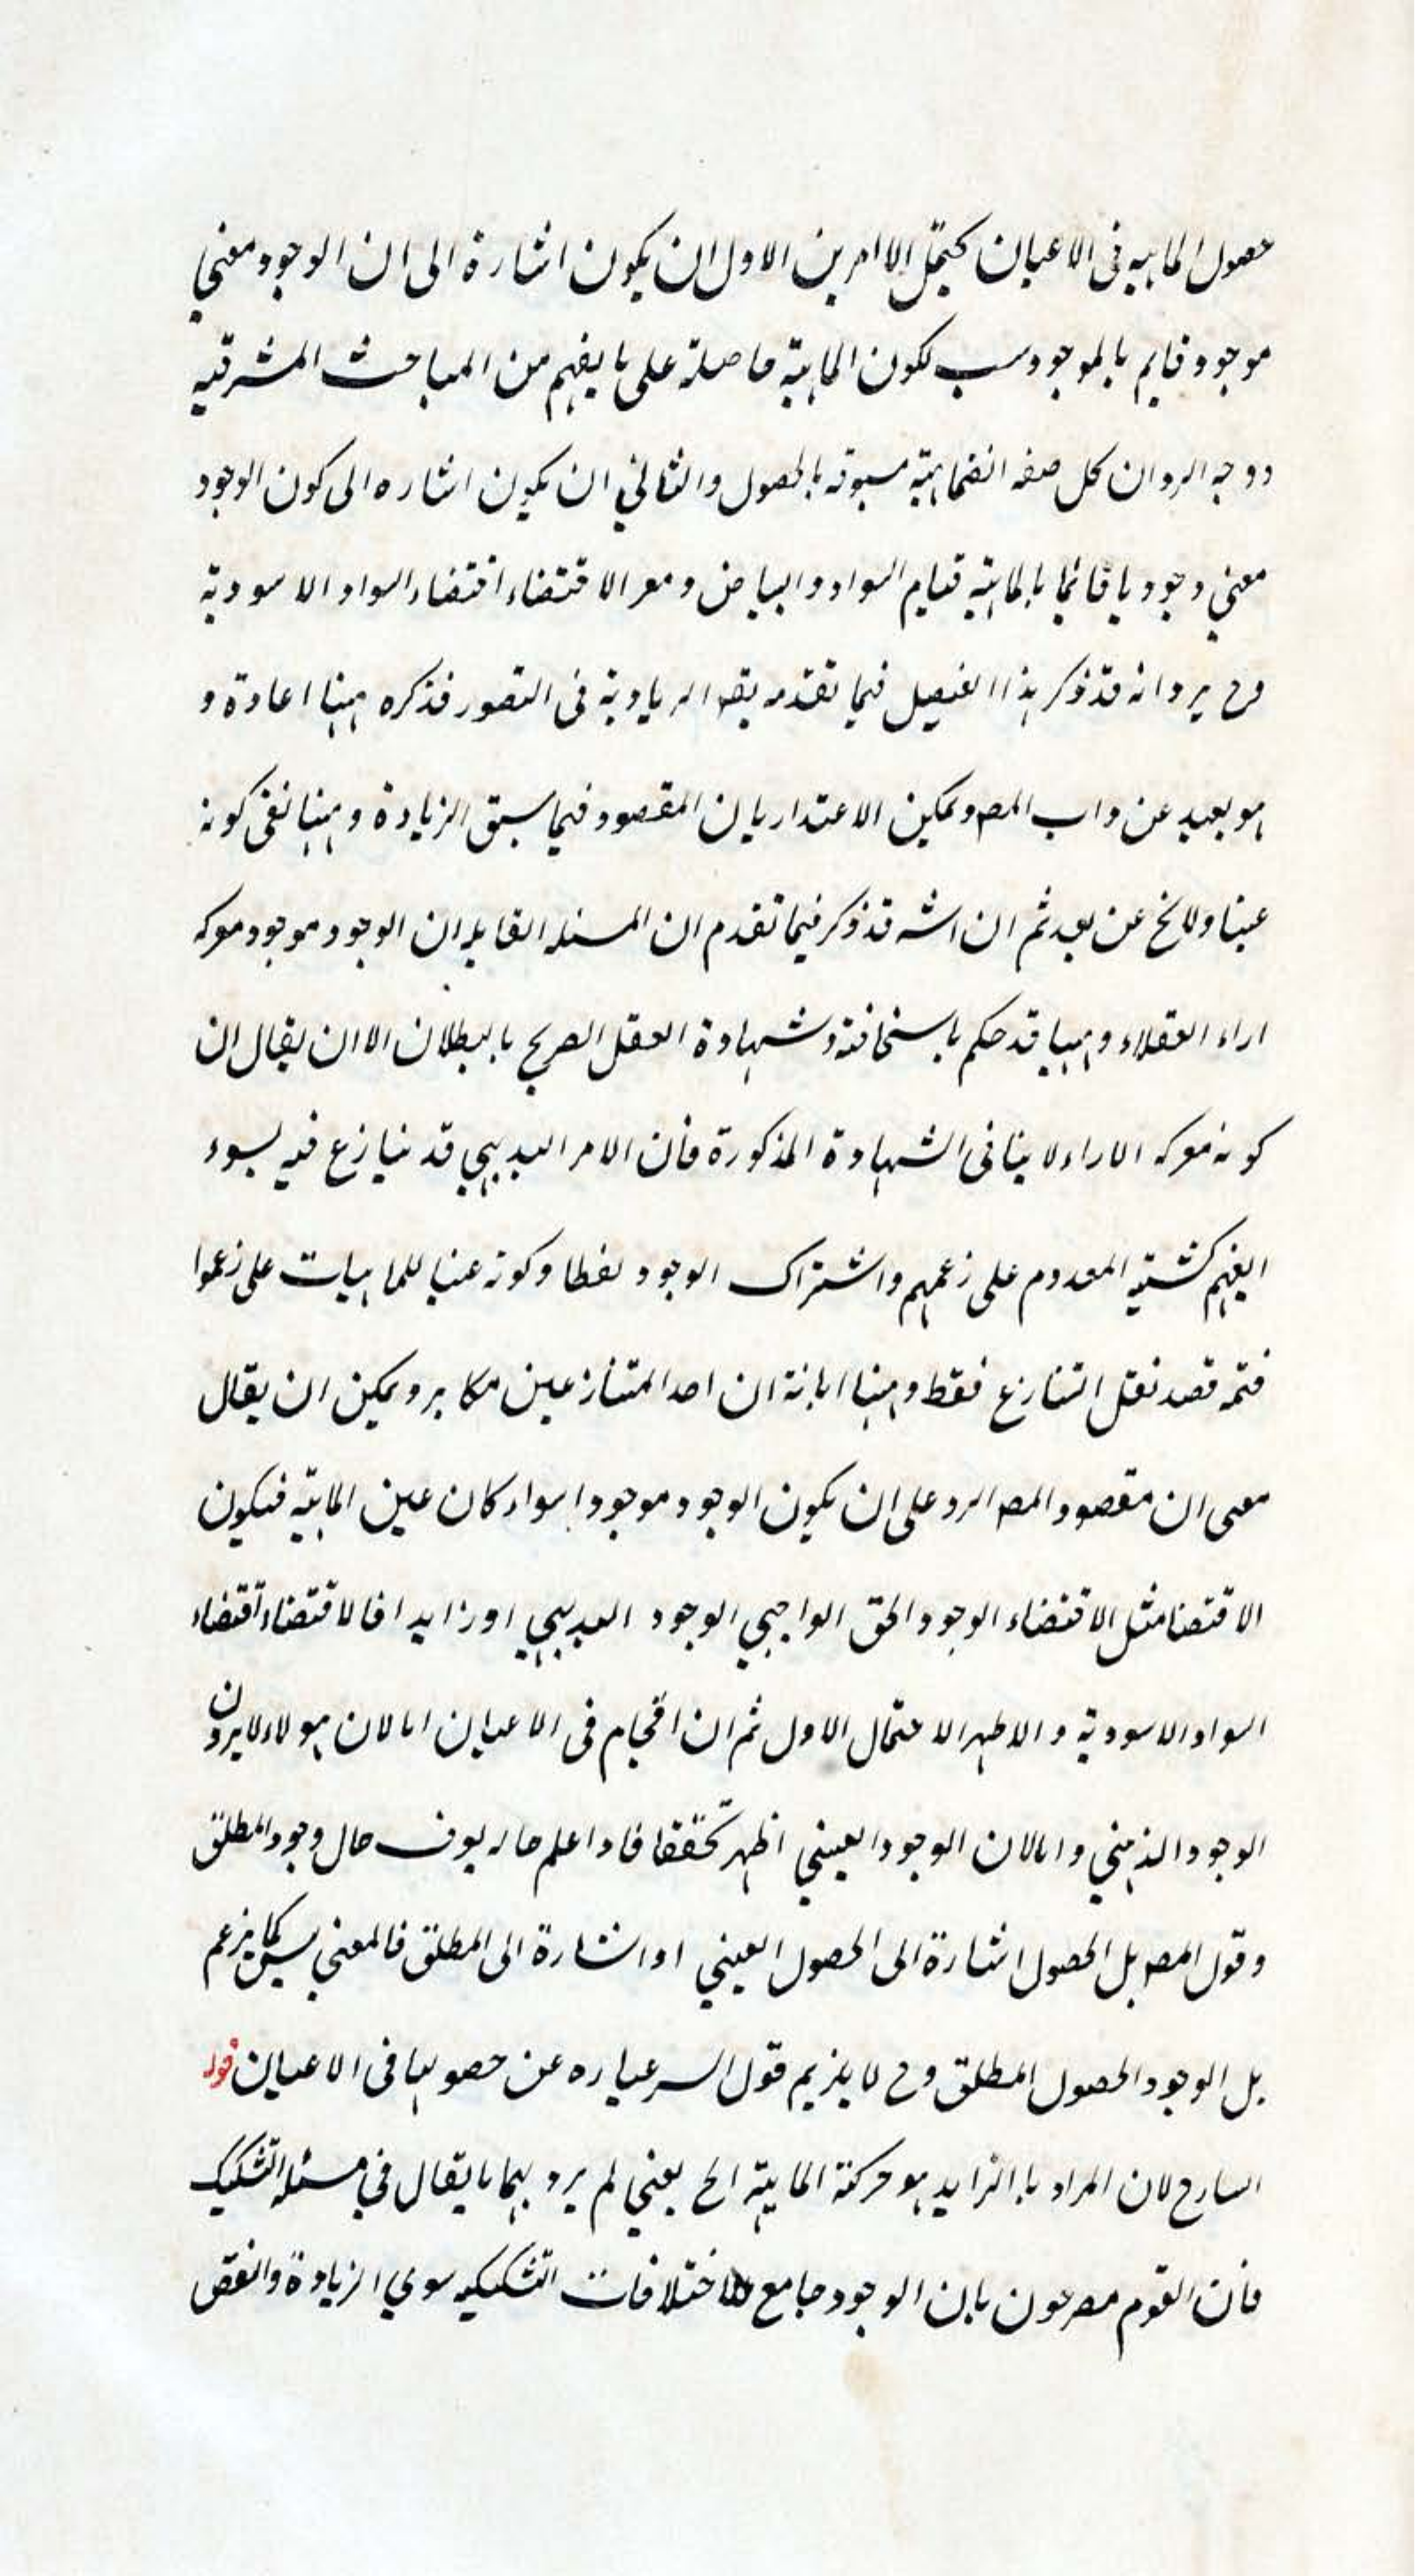 حصول الماهيه فى الاعيان يحتمل الامرين الاول ان يكون اشارة الى ان الوجود معنى
موجود قايم بالموجود سبب لكون الماهية حاصلة على ما يفهم من المباحث المشرقيه
ووجه الرد ان كل صفه انضماميّة مسبوقه بالحصول والثانى ان يكون اشاره الى كون الوجود
معنى وجوديا قائما بالماهيّه قيام السواد والبياض ومعر الاقتضاء اقتضاء السواد الاسوديّة
وح يرد انه قد ذكر هذا التفصيل فيما تقدم الزيادية فى التصور فذكره ههنا اعادة و
هو بعيد عن داب المصـ ويمكن الاعتذار بان المقصود فيما سبق الزيادة وههنا نفى كونه
عينا ولا يخ عن بعد ثم ان الشـ قد ذكر فيما تقدم ان المسئله القايله ان الوجود موجود معركه
اراء العقلاء وههنا قد حكم باسخافته وشهادة العقل الصريح بالبطلان الا ان يقال ان
كونه معركه الاراء لا ينافى الشهادة المذكورة فان الامر البديهى قد ينازع فيه لسوء
الفهم كشيئية المعدوم على زعمهم واشتراك الوجود لفظا وكونه عينا للماهيات على زعموا
فثمه قصد نقل التنازع فقط وههنا ابانة ان احد المتنازعين مكابر ويمكن ان يقال
معنى ان مقصود المصـ الرد على ان يكون الوجود موجودا سواء كان عين الماهيّه فيكون
الاقتضا مثل الاقتضاء الوجود الحق الواجبى الوجود البديهى او زايدا فالاقتضاء اقتضاء
السواد الاسودية والاظهر الاحتمال الاول ثم ان اقحام فى الاعيان اما لان هولاء لا يرون
الوجود الذهنى واما لان الوجود العينى اظهر تحققا فاذا علم حاله يعرف حال وجود المطلق
وقول المصـ بل الحصول اشارة الى الحصول العينى او اشارة الى المطلق فالمعنى ليس كما يزعم
بل الوجود الحصول المطلق وح لا يلايم قول الشر عباره عن حصولها فى الاعيان قوله
الشارح لان المراد بالتزايد هو حركة الماهيّة الخ يعنى لم يرد بهما ما يقال فى مسئله التشكيك
فان القوم مصرحون بان الوجود جامع للاختلافات التشكيكيه سوى الزيادة والنقص